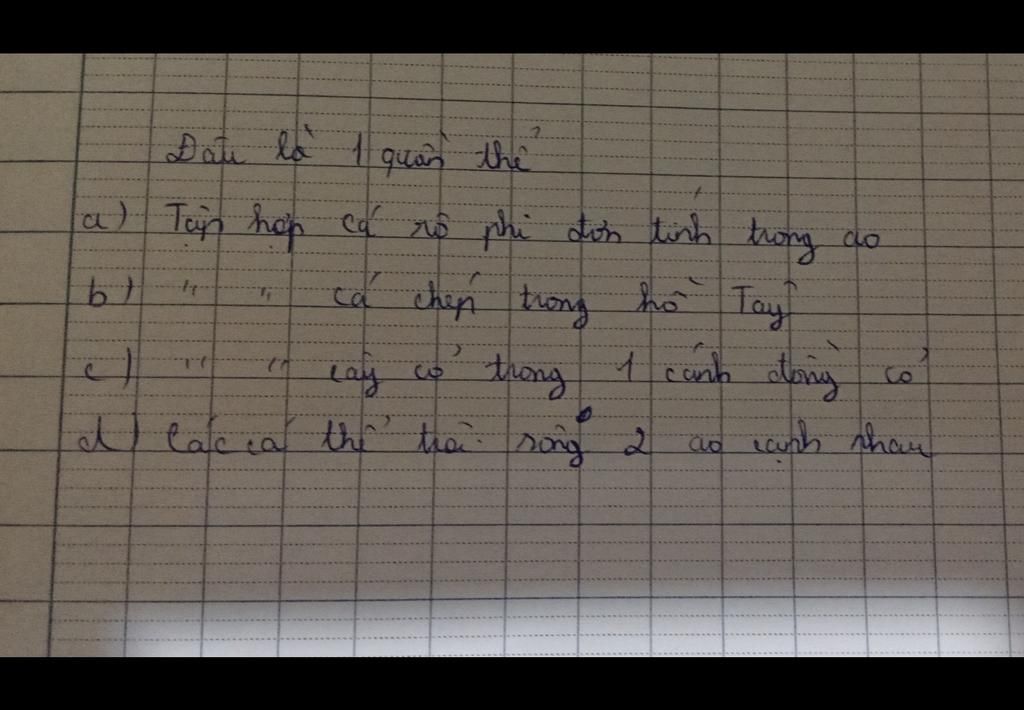 Đâu là 1 quần thể
a) Tập hợp cá rô phi đơn tính trong ao
b) " " cá chép trong hồ Tây
c) " " cây cỏ trong 1 cánh đồng cỏ
d) Các cá thể trai sông 2 ao cạnh nhau